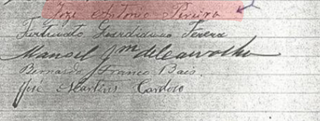 José Antonio Pereira
Fortunato Guardiano Perera
Manoel Jm de Carvalho
Bernardo Franco Baes.
José Martins Cardoso